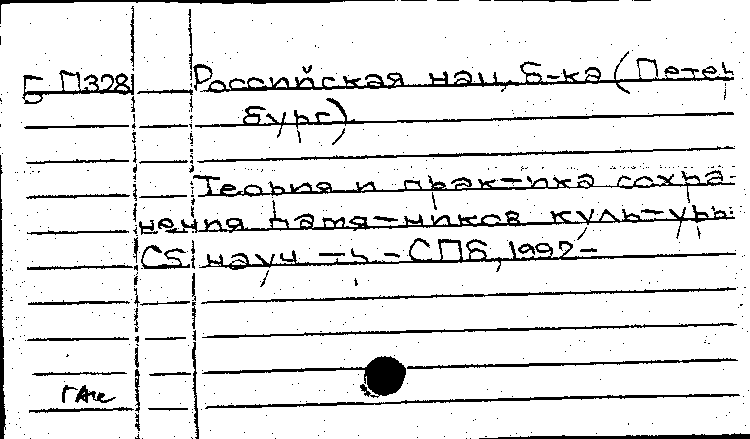 Б П328 Российская нац. б-ка (Петер
бург).
Теория и практика сохра-
нения памятников культуры:
Сб науч тр - СПб, 1992-